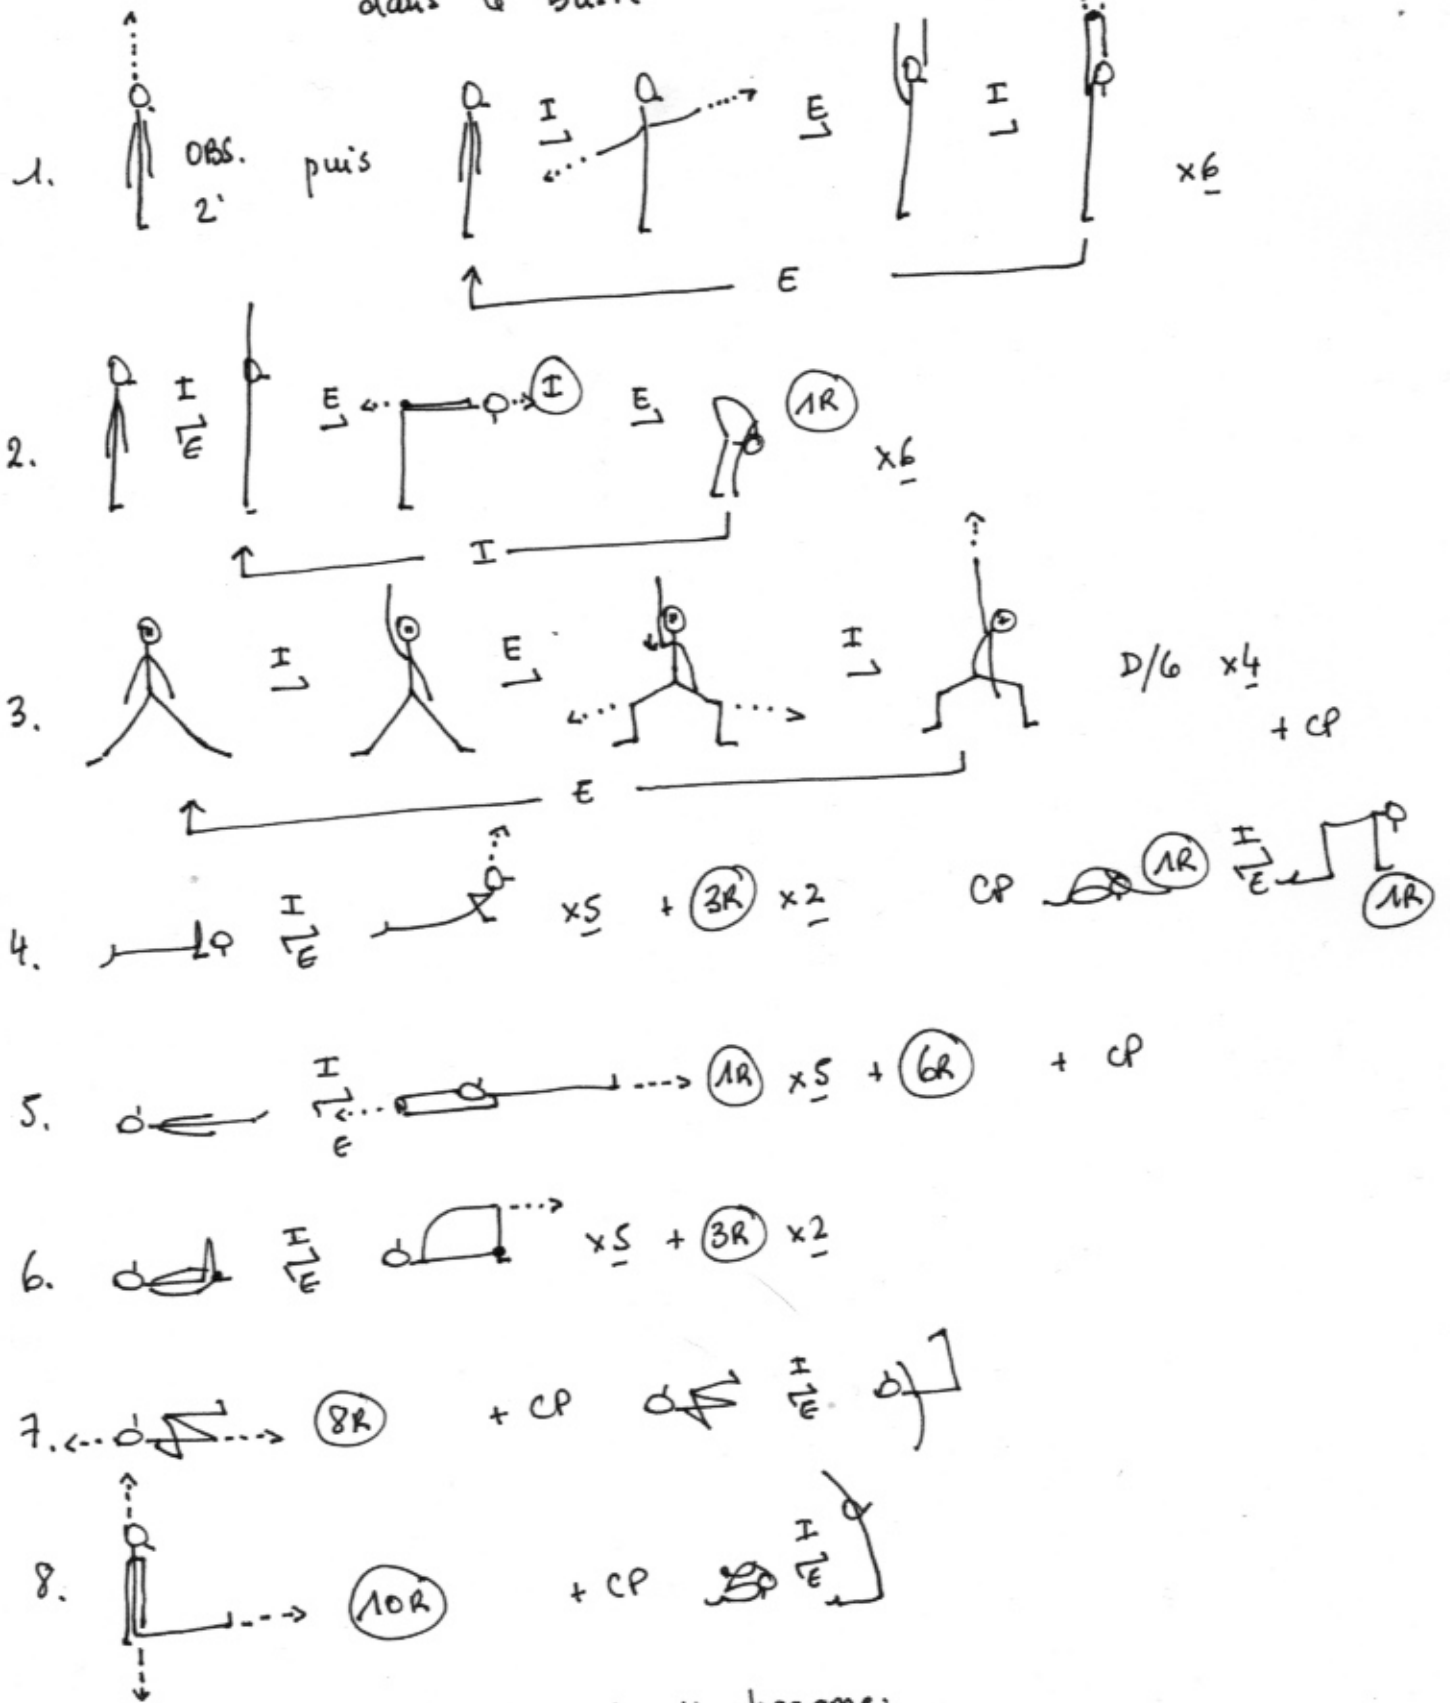 dans le
1. OBS. 2' puis I E I x6
E
2. I E E I E 1R x6
I
3. I E I D/G x4
+ CP
E
4. I E x5 + 3R x2 CP 1R I E 1R
5. I E 1R x5 + 6R + CP
6. I E x5 + 3R x2
7. 8R + CP I E
8. 10R + CP I E